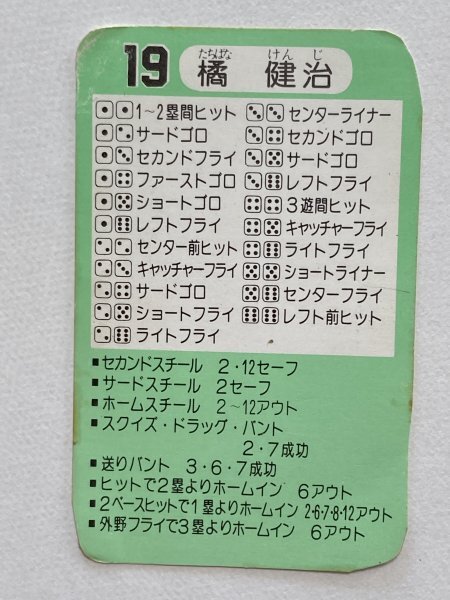 19 橘 健治
たちばな けん じ
1~2塁間ヒット センターライナー
サードゴロ セカンドゴロ
セカンドフライ サードゴロ
ファーストゴロ レフトフライ
ショートゴロ 3遊間ヒット
レフトフライ キャッチャーフライ
センター前ヒット ライトフライ
キャッチャーフライ ショートライナー
サードゴロ センターフライ
ショートフライ レフト前ヒット
ライトフライ
■セカンドスチール 2・12セーフ
■サードスチール 2セーフ
■ホームスチール 2~12アウト
■スクイズ・ドラッグ・バント
2・7成功
■送りバント 3・6・7成功
■ヒットで2塁よりホームイン 6アウト
■2ベースヒットで1塁よりホームイン 2・6・7・8・12アウト
■外野フライで3塁よりホームイン 6アウト